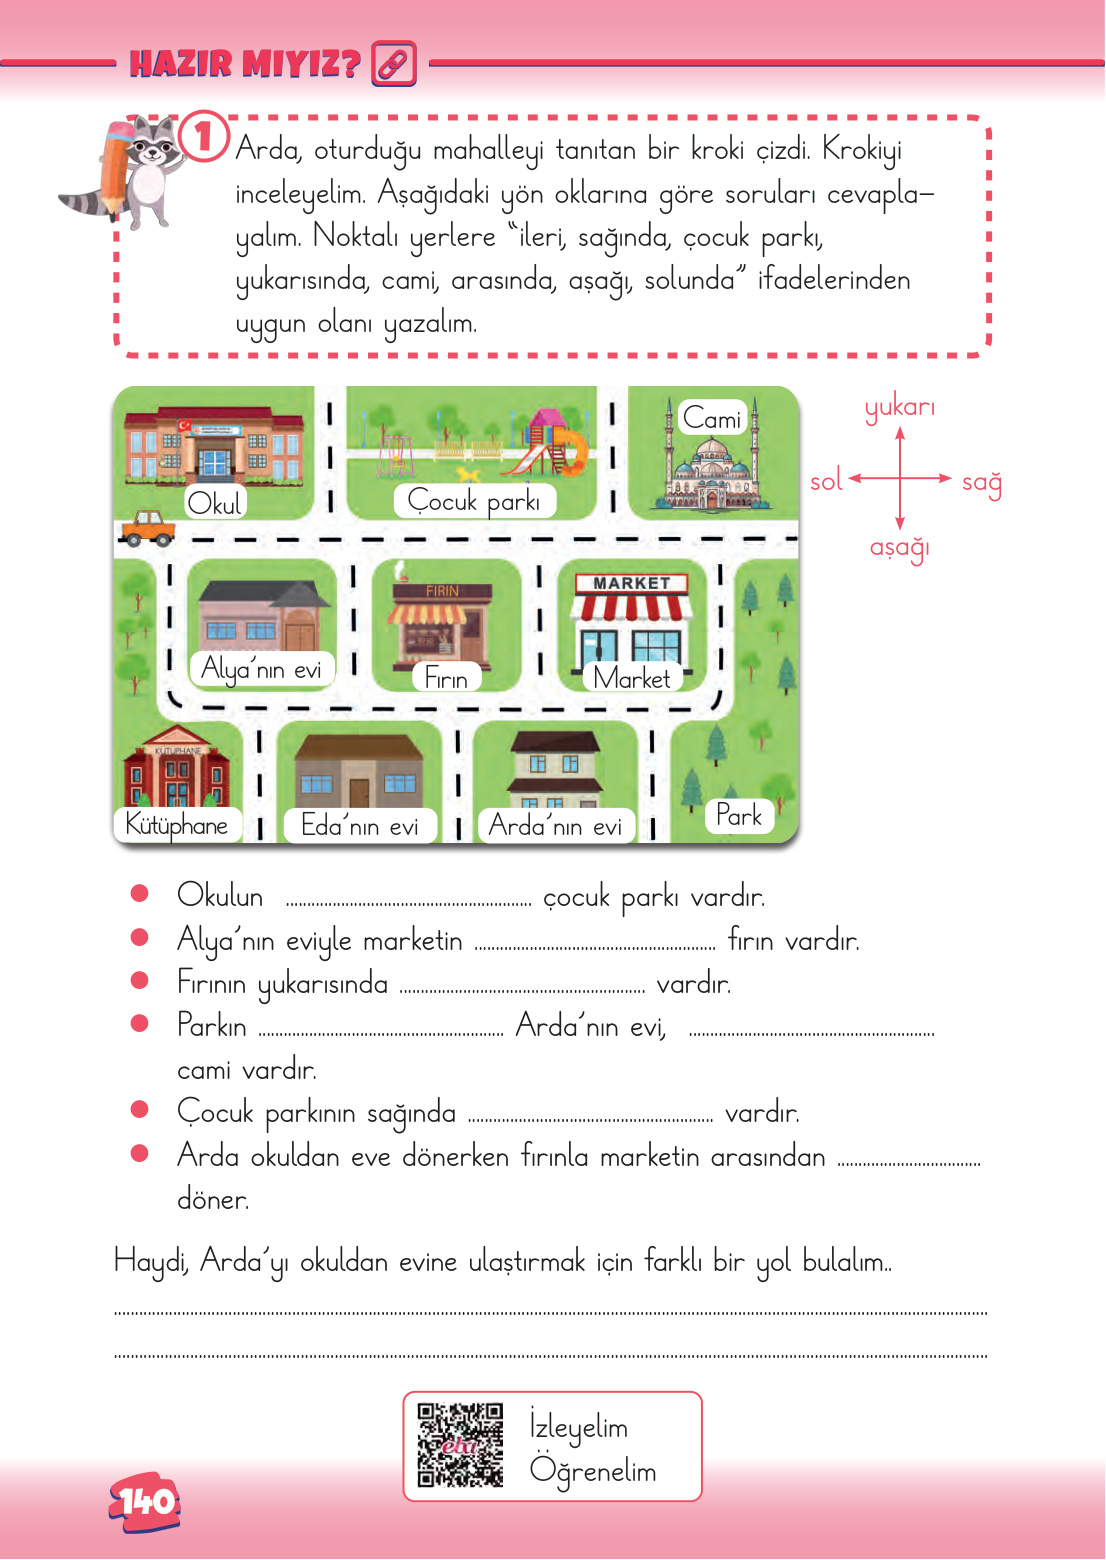 HAZIR MIYIZ?
1
Arda, oturduğu mahalleyi tanıtan bir kroki çizdi. Krokiyi
inceleyelim. Aşağıdaki yön oklarına göre soruları cevapla-
yalım. Noktalı yerlere “ileri, sağında, çocuk parkı,
yukarısında, cami, arasında, aşağı, solunda” ifadelerinden
uygun olanı yazalım.
Okul
Çocuk parkı
Cami
yukarı
sol
sağ
aşağı
Alya’nın evi
FIRIN
Fırın
MARKET
Market
KÜTÜPHANE
Kütüphane
Eda’nın evi
Arda’nın evi
Park
Okulun ........................................ çocuk parkı vardır.
Alya’nın eviyle marketin ........................................ fırın vardır.
Fırının yukarısında ........................................ vardır.
Parkın ........................................ Arda’nın evi, ........................................
cami vardır.
Çocuk parkının sağında ........................................ vardır.
Arda okuldan eve dönerken fırınla marketin arasından ........................
döner.
Haydi, Arda’yı okuldan evine ulaştırmak için farklı bir yol bulalım..
eba
İzleyelim
Öğrenelim
140